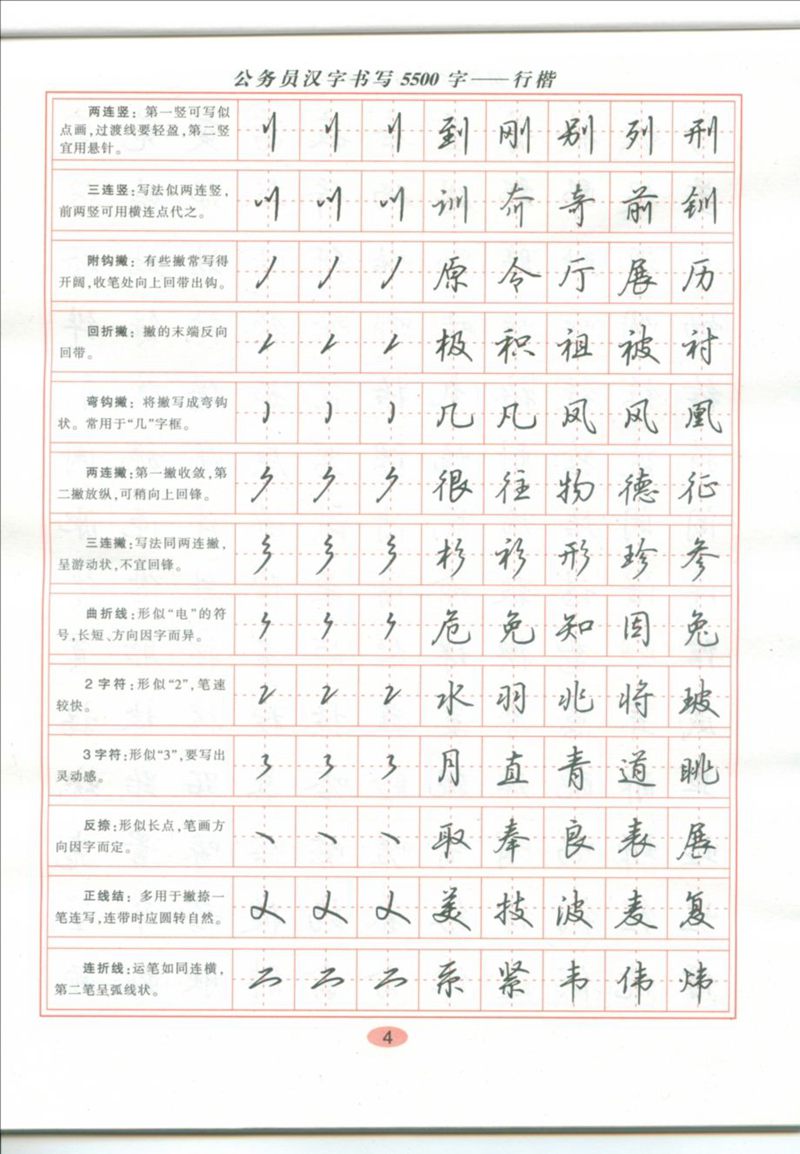 公务员汉字书写 5500 字——行楷
两连竖：第一竖可写似
点画，过渡线要轻盈，第二竖
宜用悬针。
到 刚 别 列 刑
三连竖：写法似两连竖，
前两竖可用横连点代之。
训 奔 奇 前 钏
附钩撇：有些撇常写得
开阔，收笔处向上回带出钩。
原 令 厅 展 历
回折撇：撇的末端反向
回带。
极 积 祖 被 衬
弯钩撇：将撇写成弯钩
状。常用于“几”字框。
几 凡 凤 风 凰
两连撇：第一撇收敛，第
二撇放纵，可稍向上回锋。
很 往 物 德 征
三连撇：写法同两连撇，
呈游动状，不宜回锋。
杉 衫 形 珍 参
曲折线：形似“电”的符
号，长短、方向因字而异。
危 免 知 因 兔
2字符：形似“2”，笔速
较快。
水 羽 兆 将 玻
3字符：形似“3”，要写出
灵动感。
月 直 青 道 眺
反捺：形似长点，笔画方
向因字而定。
取 奉 良 表 展
正线结：多用于撇捺一
笔连写，连带时应圆转自然。
美 技 波 麦 复
连折线：运笔如同连横，
第二笔呈弧线状。
系 紧 韦 伟 炜
4